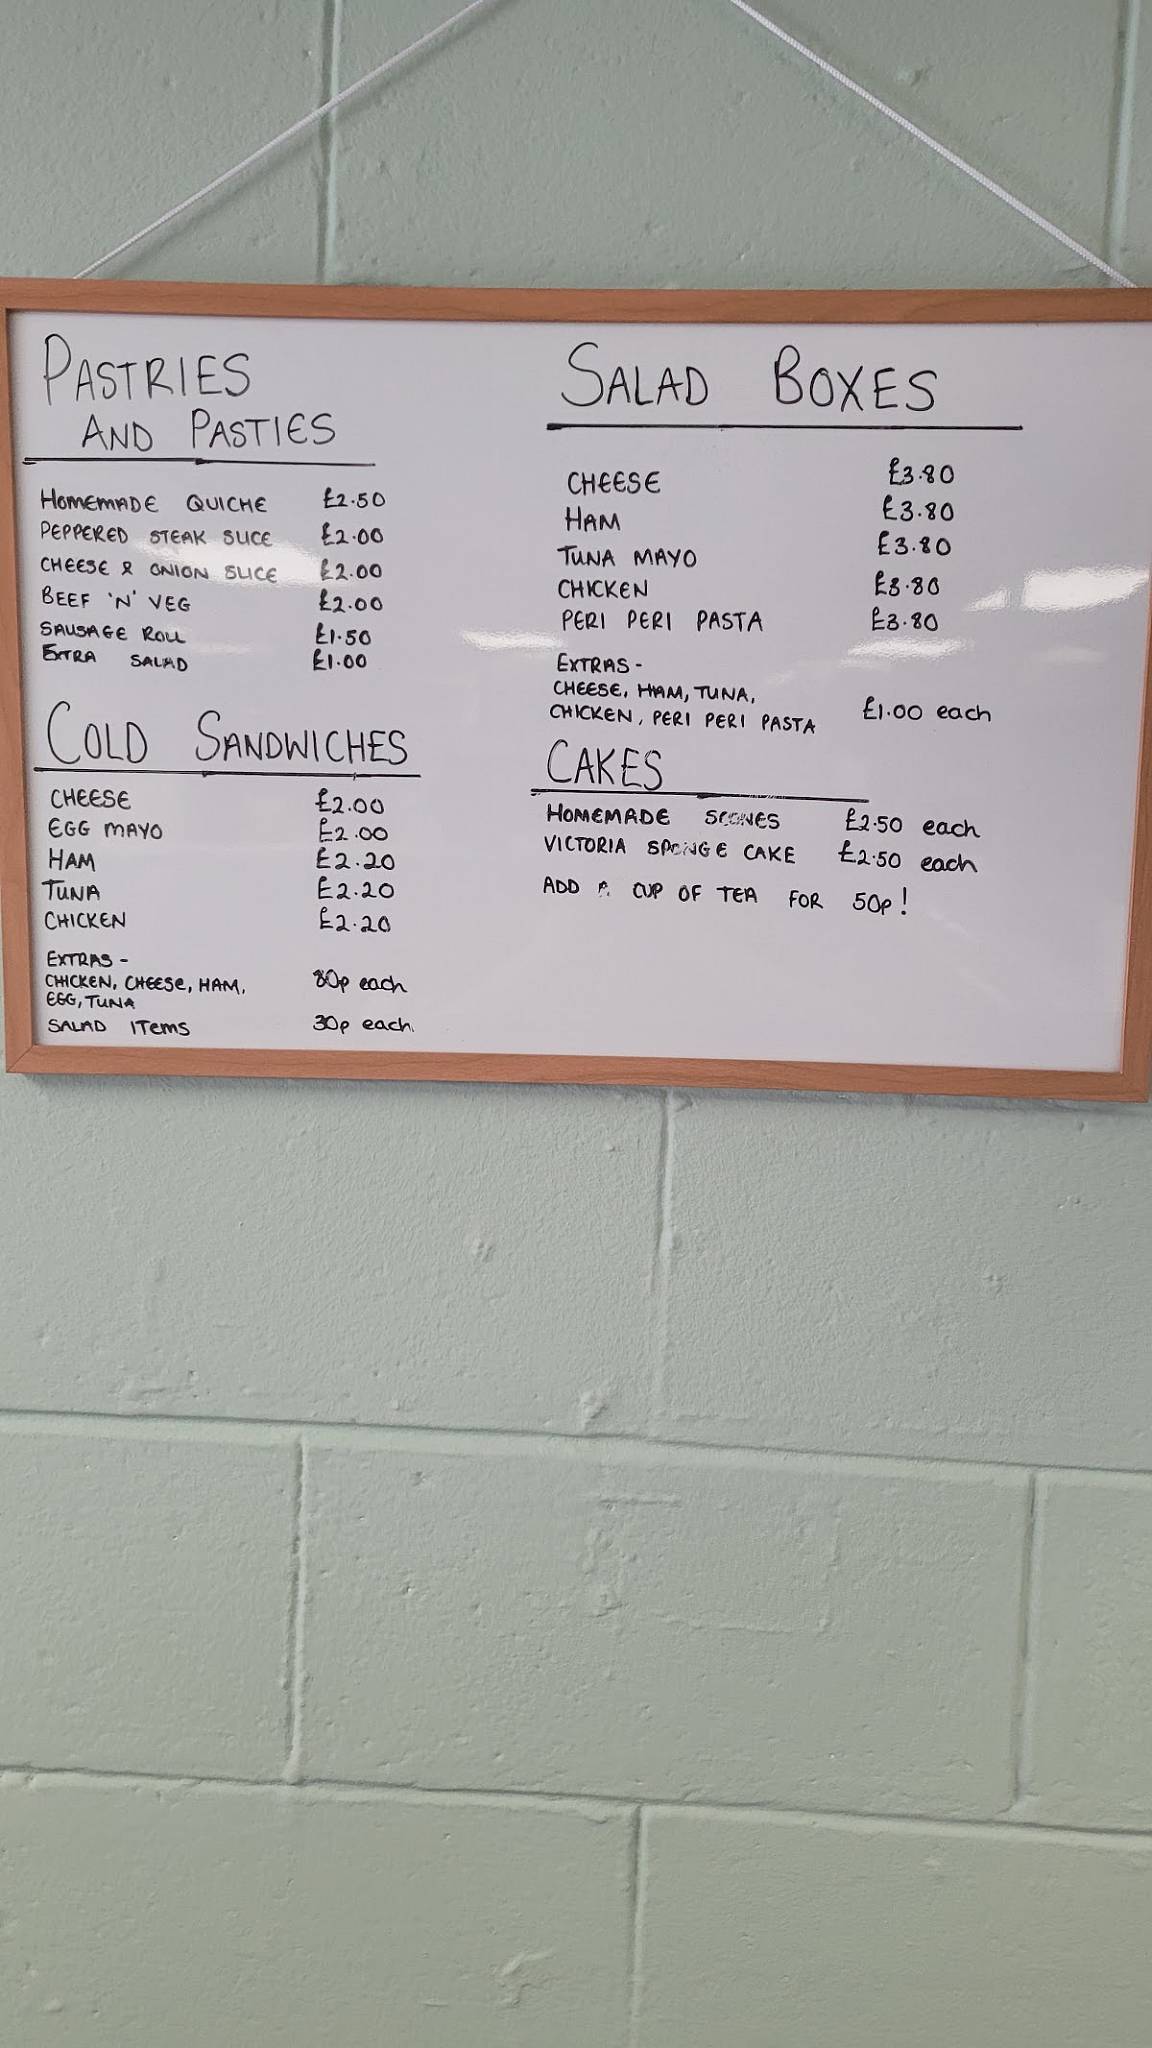 PASTRIES
AND PASTIES
HOMEMADE QUICHE £2.50
PEPPERED STEAK SLICE £2.00
CHEESE & ONION SLICE £2.00
BEEF 'N' VEG £2.00
SAUSAGE ROLL £1.50
EXTRA SALAD £1.00
COLD SANDWICHES
CHEESE £2.00
EGG MAYO £2.00
HAM £2.20
TUNA £2.20
CHICKEN £2.20
EXTRAS -
CHICKEN, CHEESE, HAM, 80p each
EGG, TUNA
SALAD ITEMS 30p each.
SALAD BOXES
CHEESE £3.80
HAM £3.80
TUNA MAYO £3.80
CHICKEN £3.80
PERI PERI PASTA £3.80
EXTRAS -
CHEESE, HAM, TUNA,
CHICKEN, PERI PERI PASTA £1.00 each
CAKES
HOMEMADE SCONES £2.50 each
VICTORIA SPONGE CAKE £2.50 each
ADD A CUP OF TEA FOR 50p!